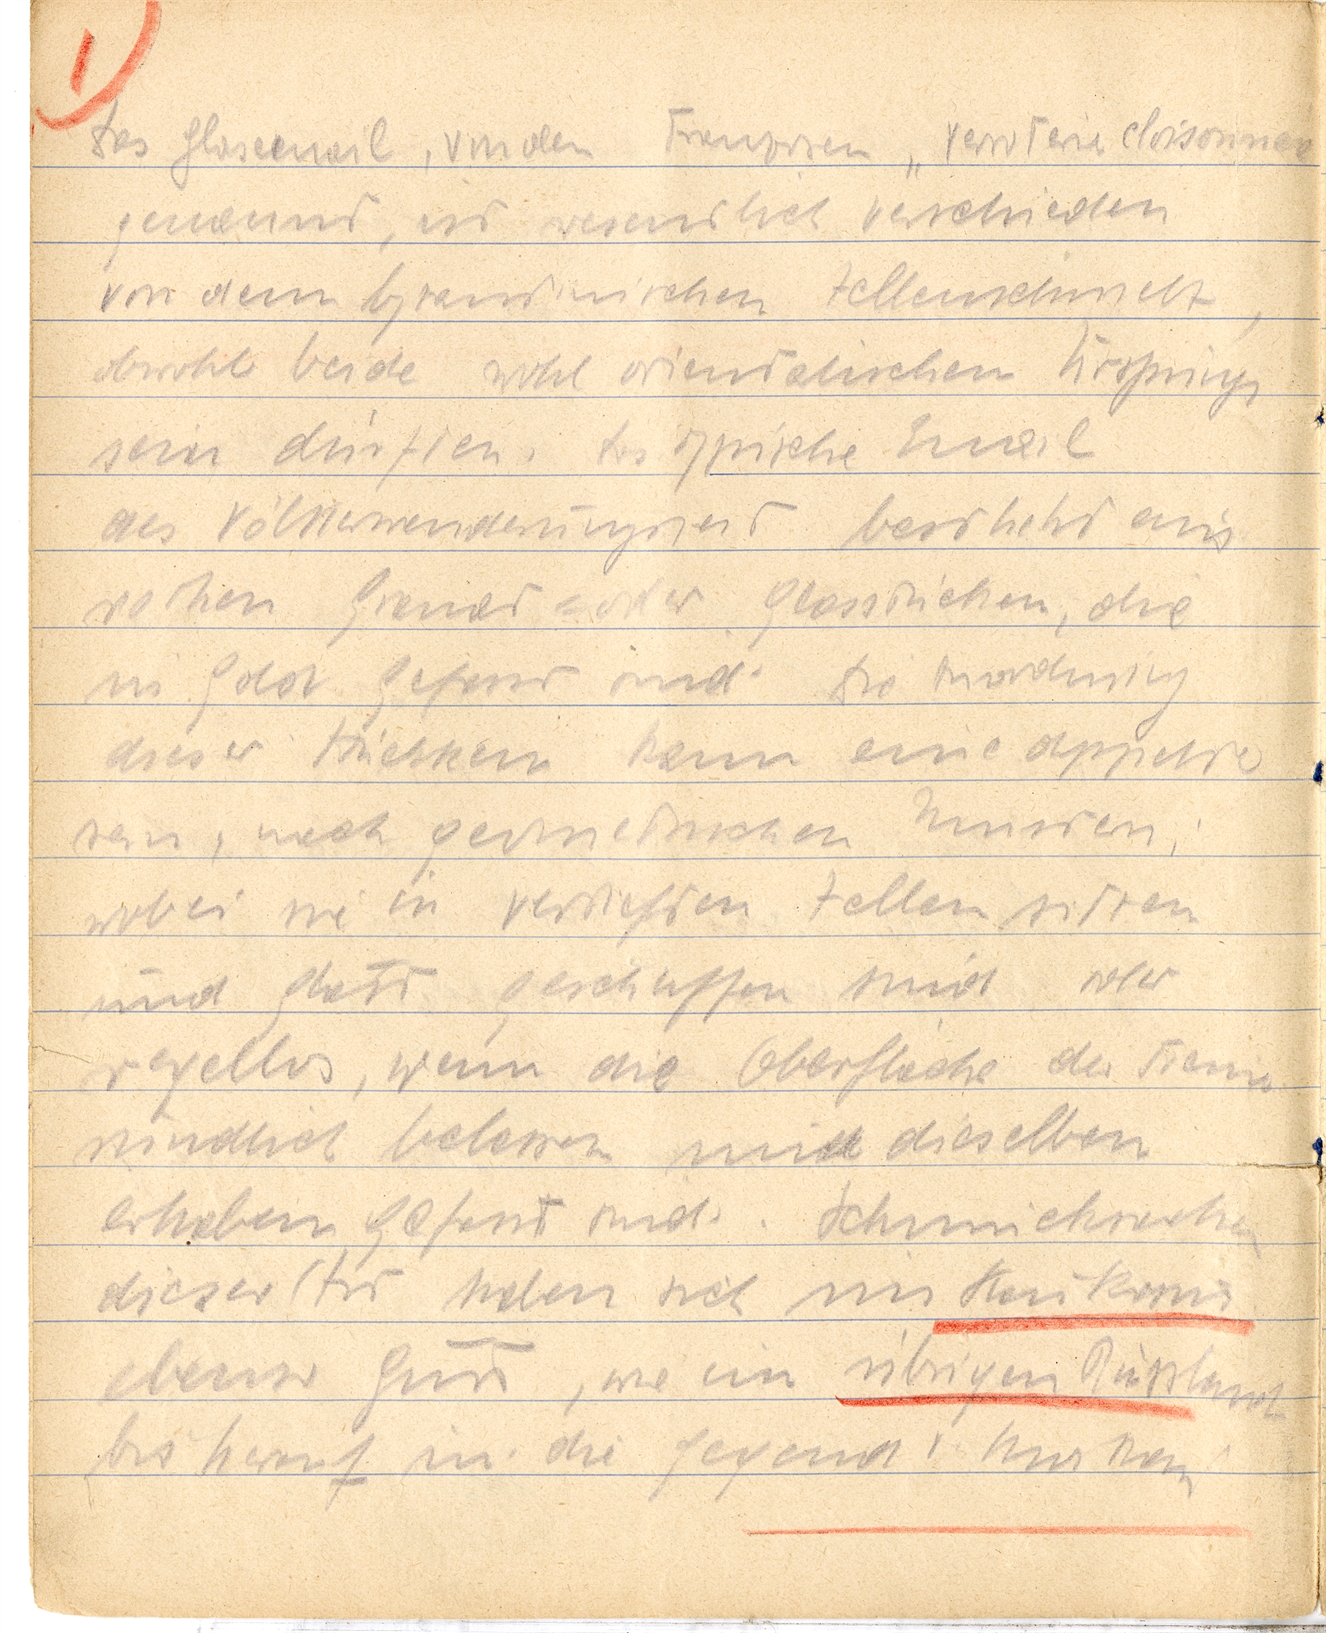 1)
Das Glasemail, von den Franzosen „verroterie cloisonnée
genannt, ist wesentlich verschieden
von dem byzantinischen Zellenschmelz,
obwohl beide wohl orientalischen Ursprungs
sein dürften. Das typische Email
des Völkerwanderungszeit besteht aus
rothen Granat- oder Glasstücken, die
in Gold gefasst sind. Die Anordnung
dieser Stücken kann eine doppelte
sein, nach geometrischen Mustern,
wobei sie in vertieften Zellen sitzen
und glatt geschliffen sind oder
regellos, wenn die Oberfläche der Steine
rundlich belassen und dieselben
erhaben gefasst sind. Schmucksachen
dieser Art haben sich im Kaukasus
ebenso gut, wie im übrigen Russland
bis herauf in die Gegend v. Moskau